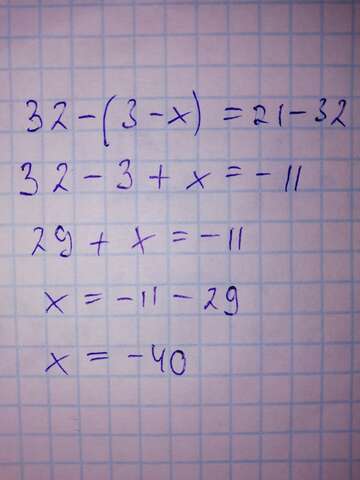 32-(3-x)=21-32
32-3+x=-11
29+x=-11
x=-11-29
x=-40